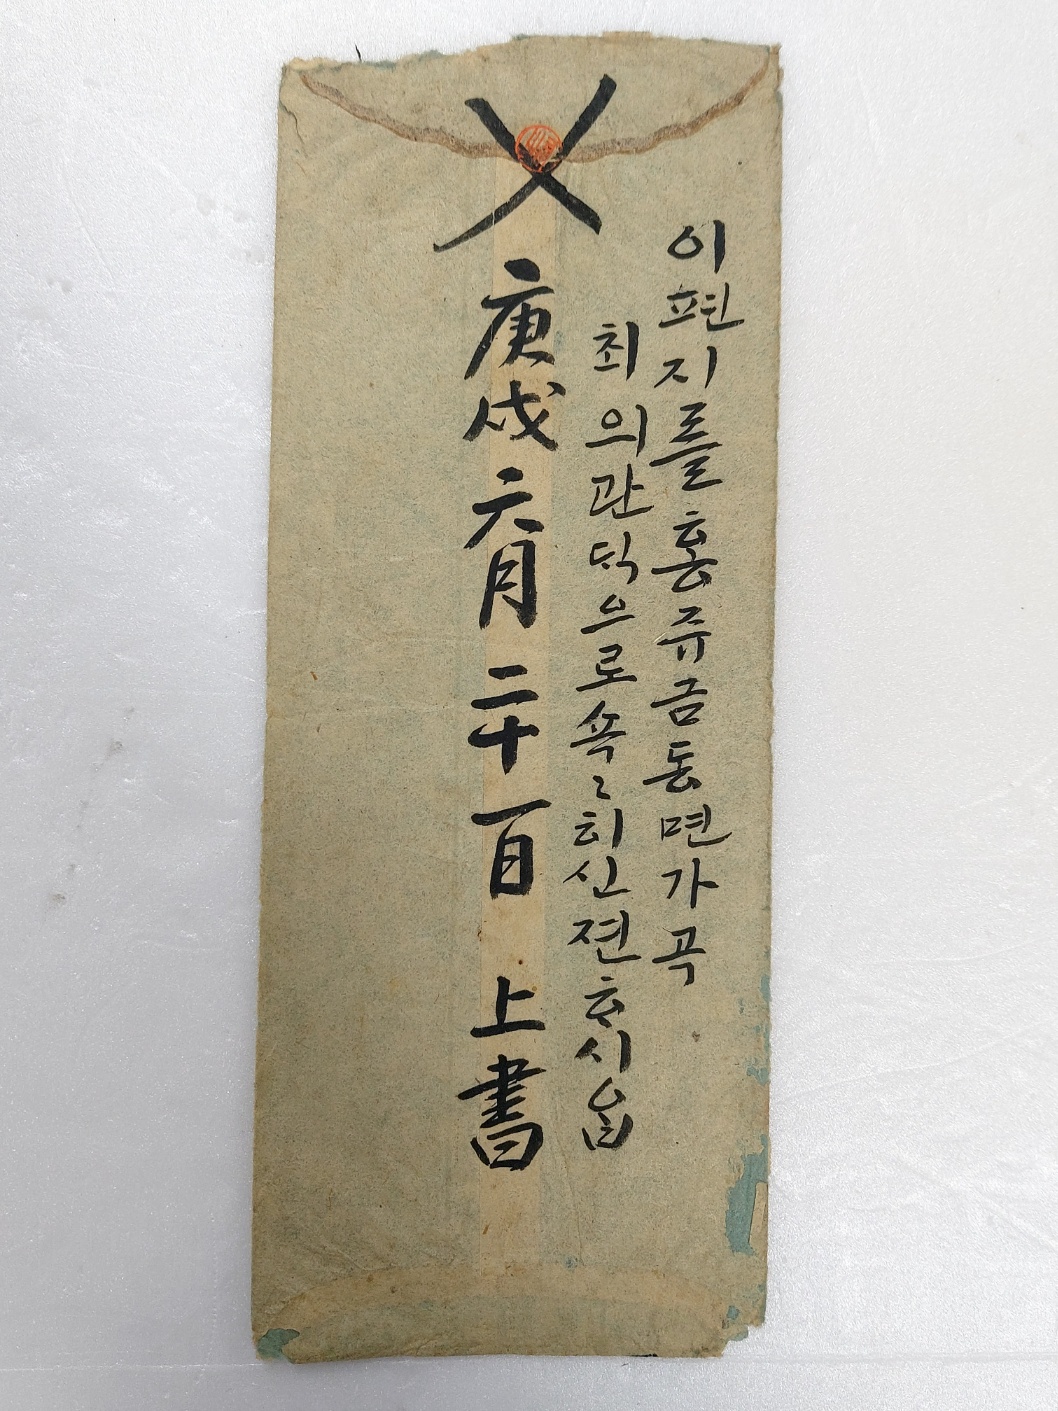 이편지를홍쥬금동면가곡
최의관ᄃᆡᆨ으로쇽〻히신젼ᄒᆞ시옵
庚戌六月二十一日 上書